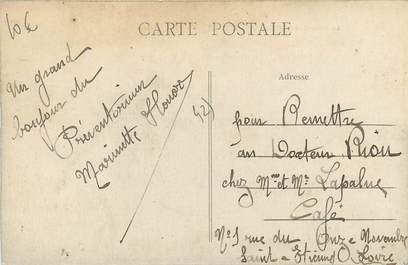 10€
CARTE POSTALE
Un grand
bonjour du
Préventorium
Marinette
42)
Adresse
pour Remettre
au Docteur Riou
chez Mme et Mr Lapalus
Café
No 1 rue du Onze Novembre
Saint-Etienne Loire